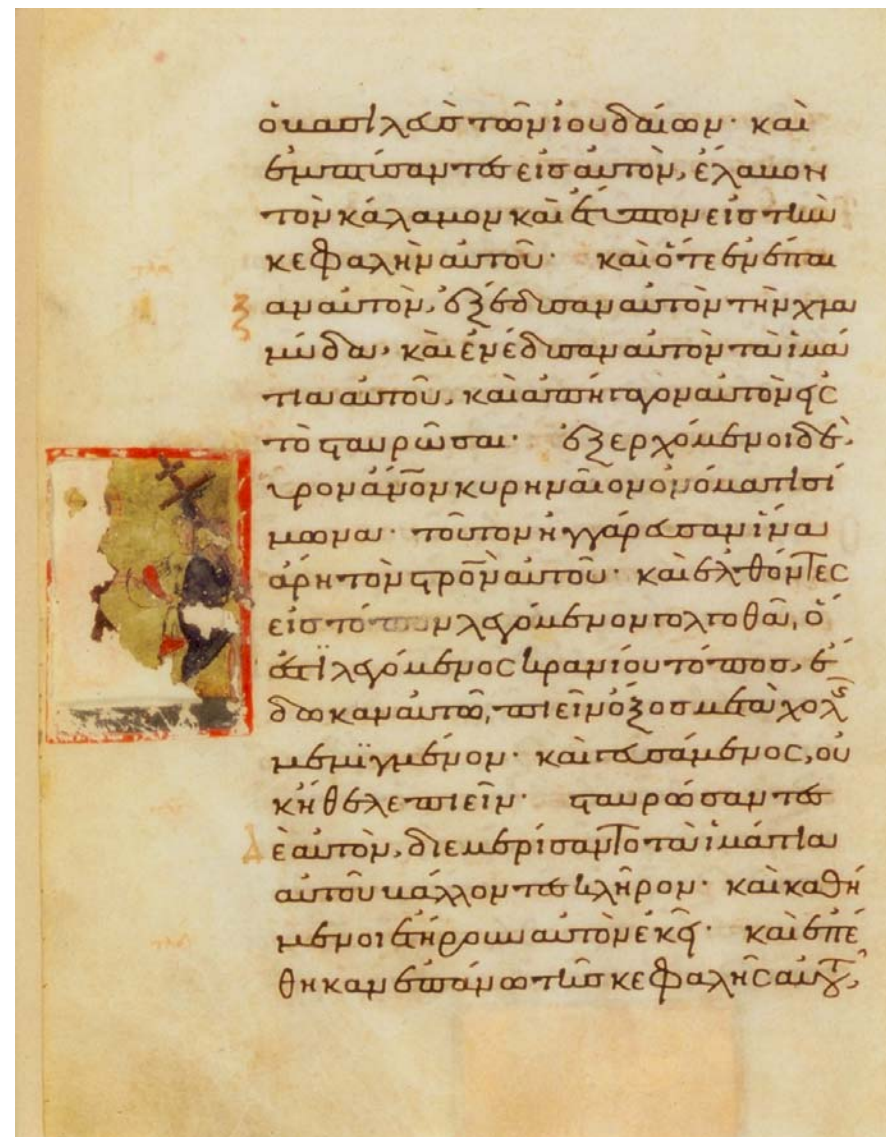 ὁ βασιλεὺς τῶν ἰουδαίων· καὶ
ἐμπτύσαντες εἰς αὐτὸν, ἔλαβον
τὸν κάλαμον καὶ ἔτυπτον εἰς τὴν
κεφαλὴν αὐτοῦ· καὶ ὅτε ἐνέπαι
ξαν αὐτὸν, ἐξέδυσαν αὐτὸν τὴν χλα
μύδα, καὶ ἐνέδυσαν αὐτὸν τὰ ἱμά
τια αὐτοῦ, καὶ ἀπήγαγον αὐτὸν εἰς
τὸ σταυρῶσαι· ἐξερχόμενοι δὲ,
εὗρον ἄνον κυρηναῖον ὀνόματι σί
μωνα· τοῦτον ἠγγάρευσαν ἵνα
ἄρη τὸν στρὸν αὐτοῦ· καὶ ἐλθόντες
εἰς τόπον λεγόμενον γολγοθᾶ, ὅ
ἐστι λεγόμενος κρανίου τόπος, ἔ
δωκαν αὐτῶ, πιεῖν ὄξος μετὰ χολῆς
μεμϊγμένον· καὶ γευσάμενος, οὐ
κ ἤθελε πιεῖν· σταυρώσαντες
δὲ αὐτὸν, διεμερίσαντο τὰ ἱμάτια
αὐτοῦ βάλλοντες κλῆρον· καὶ καθή
μενοι ἐτήρουν αὐτὸν ἐκεῖ· καὶ ἐπέ
θηκαν ἐπάνω τῆς κεφαλῆς αὐτοῦ,